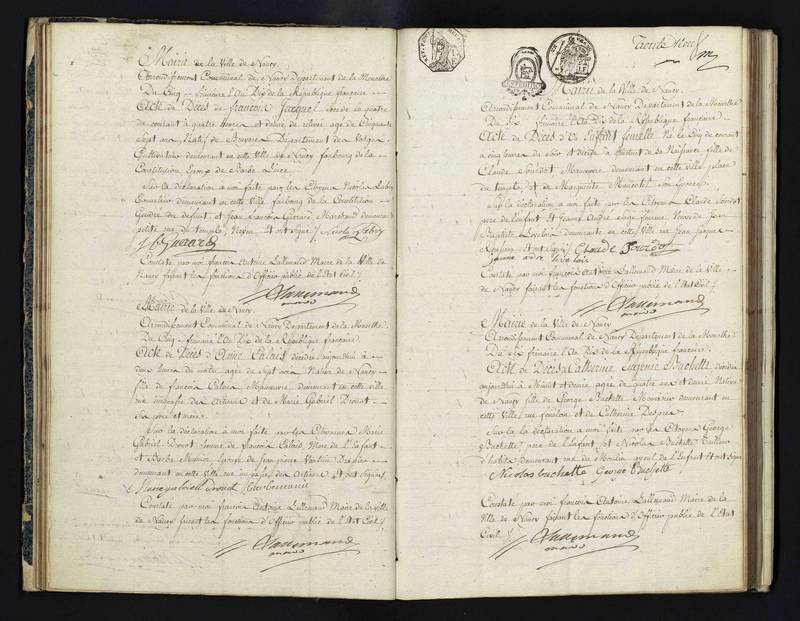 Mairie de la Ville de Nancy
Arrondissement Communal de Nancy Departement de la Meurthe
Du Cinq frimaire l'An Dix de la République française
Acte de Décès de françois Jacquel
du courant à quatre heures et demie de relevée agé de Cinquante
Sept ans Natif de Bruyere Departement des Vosges
Cultivateur demeurant en cette Ville de Nancy faubourg de la
Constitution Epoux de Barbe
Sur la déclaration à moi faite par les Citoyens Nicolas
demeurant en cette Ville faubourg de la Constitution
Gendre du defunt et Jean françois Gerard Marchand demeurant
petite rue du temple Et ont signé
J f Gerard
Constaté par moi françois Antoine Lallemand Maire de la Ville de
Nancy faisant les fonctions d'Officier public de l'Etat Civil
Lallemand
Mairie de la Ville de Nancy
Arrondissement Communal de Nancy Departement de la Meurthe
Du Cinq frimaire l'An Dix de la République française
Acte de Décès d'Anne Calais décédée aujourd'hui à
deux heures du matin agée de Sept ans Native de Nancy
fille de françois Calais Manœuvre demeurant en cette ville
rue des Artisans et de Marie Gabriel Drouot
Ses pere et mere
Sur la déclaration à moi faite par les Citoyennes Marie
Gabriel Drouot femme de françois Calais Mere de l'Enfant
et Barbe Epouse de Jean pierre
demeurant en cette Ville rue des Artisans Et ont signé
Marie gabriel drouot
Constaté par moi françois Antoine Lallemand Maire de la Ville
de Nancy faisant les fonctions d'Officier public de l'Etat Civil
Lallemand
Mairie de la Ville de Nancy
Arrondissement Communal de Nancy Departement de la Meurthe
Du Six frimaire l'An Dix de la République française
Acte de Décès d'un Enfant femelle Né le Cinq du courant
à cinq heures du soir et décédé à l'instant de sa Naissance fille de
Claude Sourdot Manœuvre demeurant en cette Ville place
du temple et de Marguerite Son Epouse
Sur la déclaration à moi faite par les Citoyens Claude Sourdot
pere de l'enfant et Jeanne André Sage femme Veuve de Jean
Baptiste demeurante en cette Ville rue Jean Jacques
Rousseau Et ont signé Claude Sourdot
jeanne andre
Constaté par moi françois Antoine Lallemand Maire de la Ville
de Nancy faisant les fonctions d'Officier public de l'Etat Civil
Lallemand
Mairie de la Ville de Nancy
Arrondissement Communal de Nancy Departement de la Meurthe
Du Six frimaire l'An Dix de la République française
Acte de Décès de Catherine Eugenie Buchette décédée
aujourd'hui à Minuit et demie agée de quatre ans et demie Native
de Nancy fille de George Buchette Menuisier demeurant en
cette Ville rue fénélon et de Catherine Despres
Sur la déclaration à moi faite par les Citoyens George
Buchette pere de l'Enfant et Nicolas Buchette Tailleur
d'habits demeurant rue du Moulin ayeul de l'Enfant Et ont signé
Nicolas buchette George Buchette
Constaté par moi françois Antoine Lallemand Maire de la
Ville de Nancy faisant les fonctions d'Officier public de l'Etat
Civil
Lallemand